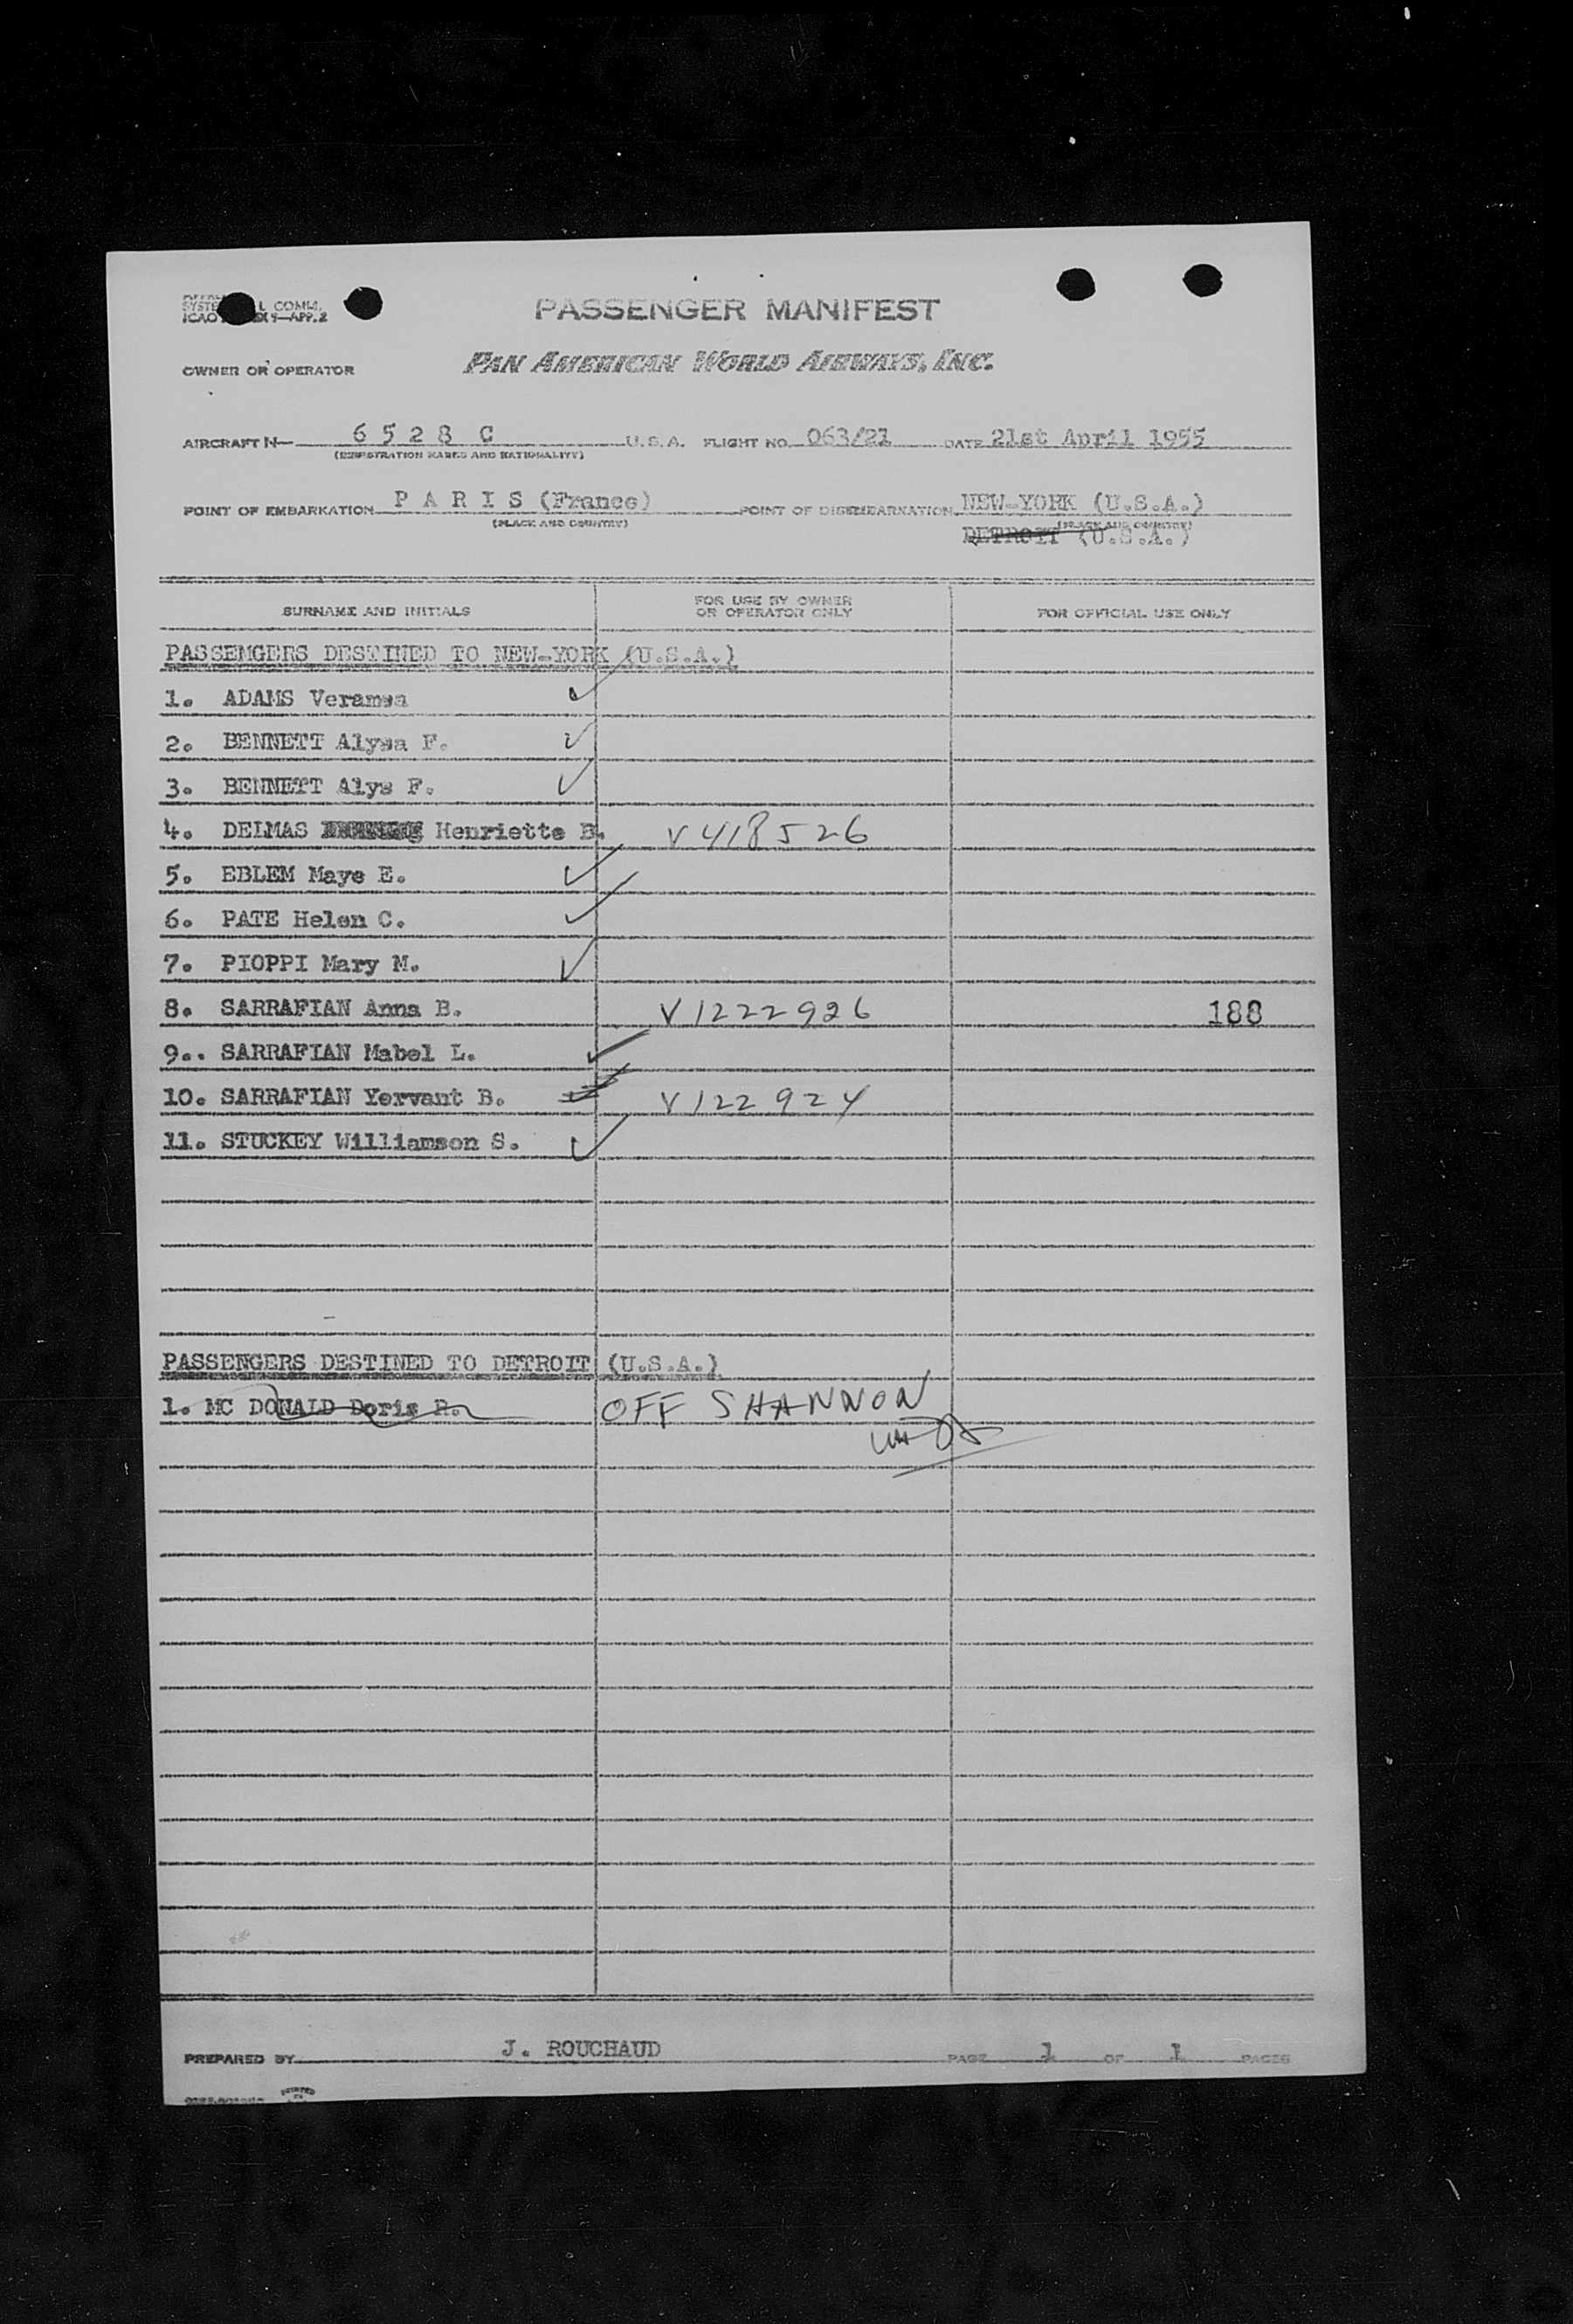 L COMM.
ICAO 9—APP. 2
PASSENGER MANIFEST
OWNER OR OPERATOR PAN AMERICAN WORLD AIRWAYS, INC.
AIRCRAFT N— 6 5 2 8 C U.S.A. FLIGHT NO. 063/21 DATE 21st April 1955
(REGISTRATION MARKS AND NATIONALITY)
POINT OF EMBARKATION P A R I S (France) POINT OF DISEMBARKATION NEW-YORK (U.S.A.)
(PLACE AND COUNTRY) (PLACE AND COUNTRY)
DETROIT (U.S.A.)
SURNAME AND INITIALS FOR USE BY OWNER OR OPERATOR ONLY FOR OFFICIAL USE ONLY
PASSENGERS DESTINED TO NEW-YORK (U.S.A.)
1. ADAMS
2. BENNETT Alysa F.
3. BENNETT Alys F.
4. DELMAS Henriette B. V 418526
5. EBLEM Maye E.
6. PATE Helen C.
7. PIOPPI Mary M.
8. SARRAFIAN Anna B. V 1222926 188
9.. SARRAFIAN Mabel L.
10. SARRAFIAN Yervant B. V 122924
11. STUCKEY Williamson S.
PASSENGERS DESTINED TO DETROIT (U.S.A.)
1. MC DONALD Doris R. OFF SHANNON
PREPARED BY J. ROUCHAUD PAGE 1 OF 1 PAGES
PRINTED